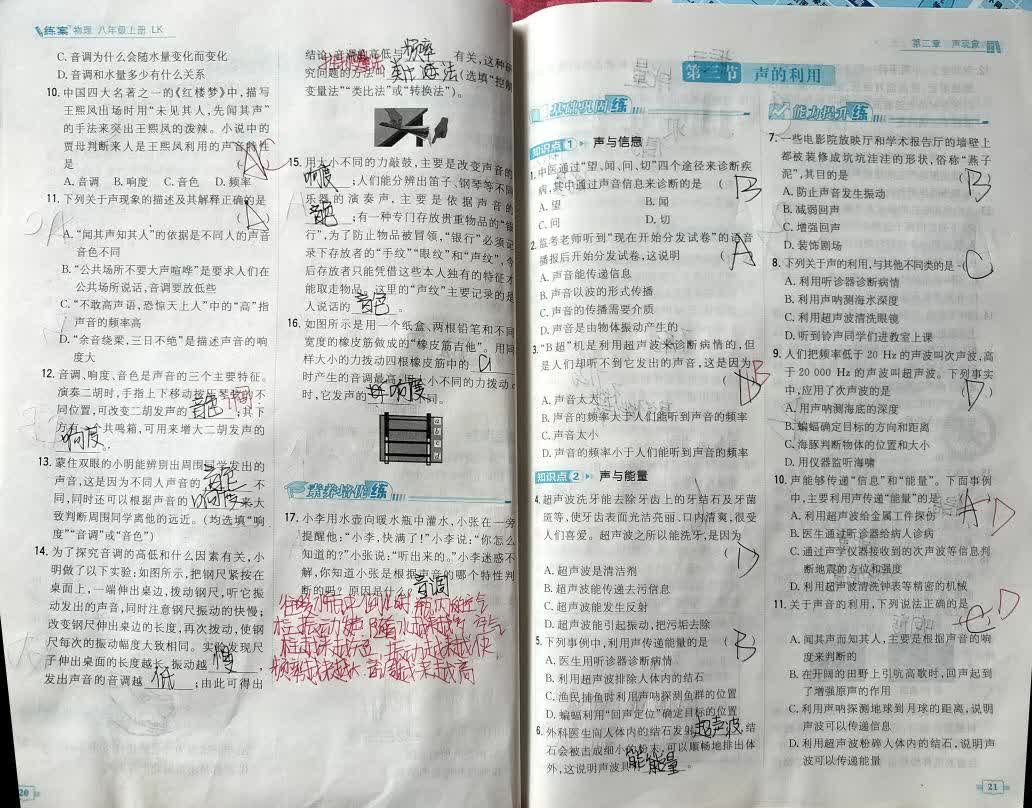 练案 物理 八年级上册 LK
C. 音调为什么会随水量变化而变化
D. 音调和水量多少有什么关系
10. 中国四大名著之一的《红楼梦》中，描写
王熙凤出场时用“未见其人，先闻其声”
的手法来突出王熙凤的泼辣。小说中的
贾母判断来人是王熙凤利用的声音的特性
是 ( A C )
A. 音调 B. 响度 C. 音色 D. 频率
11. 下列关于声现象的描述及其解释正确的是
( A )
A. “闻其声知其人”的依据是不同人的声音
音色不同
B. “公共场所不要大声喧哗”是要求人们在
公共场所说话，音调要放低些
C. “不敢高声语，恐惊天上人”中的“高”指
声音的频率高
D. “余音绕梁，三日不绝”是描述声音的响
度大
12. 音调、响度、音色是声音的三个主要特征。
演奏二胡时，手指上下移动按压琴弦的不
同位置，可改变二胡发声的 音色 音调 ；其下
方有一个共鸣箱，可用来增大二胡发声的
响度。
13. 蒙住双眼的小明能辨别出周围同学发出的
声音，这是因为不同人声音的 音色 不
同，同时还可以根据声音的 响度 来大
致判断周围同学离他的远近。(均选填“响
度”“音调”或“音色”)
14. 为了探究音调的高低和什么因素有关，小
明做了以下实验：如图所示，把钢尺紧按在
桌面上，一端伸出桌边，拨动钢尺，听它振
动发出的声音，同时注意钢尺振动的快慢；
改变钢尺伸出桌边的长度，再次拨动，使钢
尺每次的振动幅度大致相同。实验发现尺
子伸出桌面的长度越长，振动越 慢 ，
发出声音的音调越 低 ；由此可得出
20
结论：音调的高低与 频率 有关，这种研
究问题的方法叫 类比法 (选填“控制
变量法”“类比法”或“转换法”)。
15. 用大小不同的力敲鼓，主要是改变声音的
响度 ；人们能分辨出笛子、钢琴等不同乐
器的演奏声，主要是依据声音的
音色 ；有一种专门存放贵重物品的“银
行”，为了防止物品被冒领，“银行”必须记
录下存放者的“手纹”“眼纹”和“声纹”，今
后存放者只能凭借这些本人独有的特征才
能取走物品。这里的“声纹”主要记录的是
人说话的 音色 。
16. 如图所示是用一个纸盒、两根铅笔和不同
宽度的橡皮筋做成的“橡皮筋吉他”。用同
样大小的力拨动四根橡皮筋中的 a
时产生的音调最高；用大小不同的力拨动a
时，它发声的 响度 不同。
a
b
c
d
素养培优练
17. 小李用水壶向暖水瓶中灌水，小张在一旁
提醒他：“小李，快满了！”小李说：“你怎么
知道的？”小张说：“听出来的。”小李迷惑不
解，你知道小张是根据声音的哪个特性判
断的吗？原因是什么？ 音调
第二章 声现象
第三节 声的利用
基础巩固练
知识点1 声与信息
1. 中医通过“望、闻、问、切”四个途径来诊断疾
病，其中通过声音信息来诊断的是 ( B )
A. 望 B. 闻
C. 问 D. 切
2. 监考老师听到“现在开始分发试卷”的语音
播报后开始分发试卷，这说明 ( A )
A. 声音能传递信息
B. 声音以波的形式传播
C. 声音的传播需要介质
D. 声音是由物体振动产生的
3. “B超”机是利用超声波来诊断疾病的，但
是人们却听不到它发出的声音，这是因为
( B )
A. 声音太大
B. 声音的频率大于人们能听到声音的频率
C. 声音太小
D. 声音的频率小于人们能听到声音的频率
知识点2 声与能量
4. 超声波洗牙能去除牙齿上的牙结石及牙菌
斑等，使牙齿表面光洁亮丽、口内清爽，很受
人们喜爱。超声波之所以能洗牙，是因为
( D )
A. 超声波是清洁剂
B. 超声波能传递去污信息
C. 超声波能发生反射
D. 超声波能引起振动，把污垢去除
5. 下列事例中，利用声传递能量的是 ( B )
A. 医生用听诊器诊断病情
B. 利用超声波排除人体内的结石
C. 渔民捕鱼时利用声呐探测鱼群的位置
D. 蝙蝠利用“回声定位”确定目标的位置
6. 外科医生向人体内的结石发射 超声波，结
石会被击成细小的粉末，可以顺畅地排出体
外，这说明声波具有 能量 。
能力提升练
7. 一些电影院放映厅和学术报告厅的墙壁上
都被装修成坑坑洼洼的形状，俗称“燕子
泥”，其目的是 ( B )
A. 防止声音发生振动
B. 减弱回声
C. 增强回声
D. 装饰剧场
8. 下列关于声的利用，与其他不同类的是 ( C )
A. 利用听诊器诊断病情
B. 利用声呐测海水深度
C. 利用超声波清洗眼镜
D. 听到铃声同学们进教室上课
9. 人们把频率低于 20 Hz 的声波叫次声波，高
于 20 000 Hz 的声波叫超声波。下列事实
中，应用了次声波的是 ( D )
A. 用声呐测海底的深度
B. 蝙蝠确定目标的方向和距离
C. 海豚判断物体的位置和大小
D. 用仪器监听海啸
10. 声能够传递“信息”和“能量”。下面事例
中，主要利用声传递“能量”的是 ( A D
A. 利用超声波给金属工件探伤
B. 医生通过听诊器给病人诊病
C. 通过声学仪器接收到的次声波等信息判
断地震的方位和强度
D. 利用超声波清洗钟表等精密的机械
11. 关于声音的利用，下列说法正确的是
( C D
A. 闻其声而知其人，主要是根据声音的响
度来判断的
B. 在开阔的田野上引吭高歌时，回声起到
了增强原声的作用
C. 利用声呐探测地球到月球的距离，说明
声波可以传递信息
D. 利用超声波粉碎人体内的结石，说明声
波可以传递能量
21